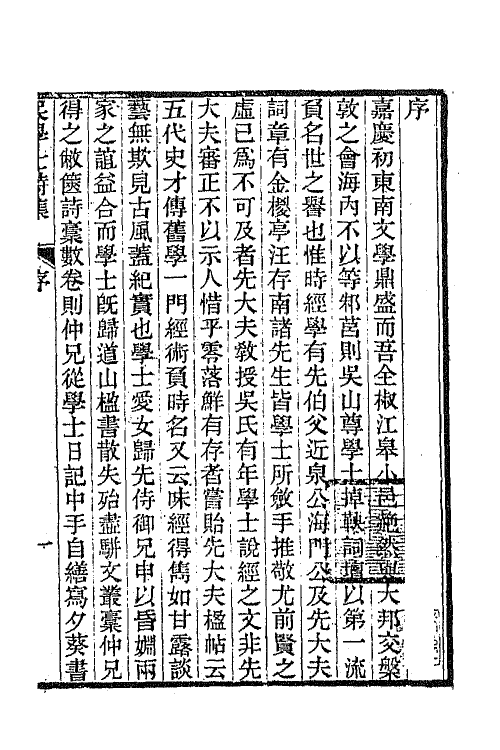 序
嘉慶初東南文學鼎盛而吾全椒江皋小邑艷然與大邦交槃
敦之會海內不以等邾莒則吳山尊學士掉鞅詞壇以第一流
負名世之譽也惟時經學有先伯父近泉公海門公及先大夫
詞章有金櫻亭汪存南諸先生皆學士所斂手推敬尤前賢之
虛己爲不可及者先大夫敎授吳氏有年學士說經之文非先
大夫審正不以示人惜乎零落鮮有存者嘗貽先大夫楹帖云
五代史才傳舊學一門經術負時名又云味經得雋如甘露談
藝無欺見古風蓋紀實也學士愛女歸先侍御兄申以昏婣兩
家之誼益合而學士旣歸道山楹書散失殆盡駢文叢稾仲兄
得之敝篋詩稾數卷則仲兄從學士日記中手自繕寫夕葵書
吳學士詩集
序
一